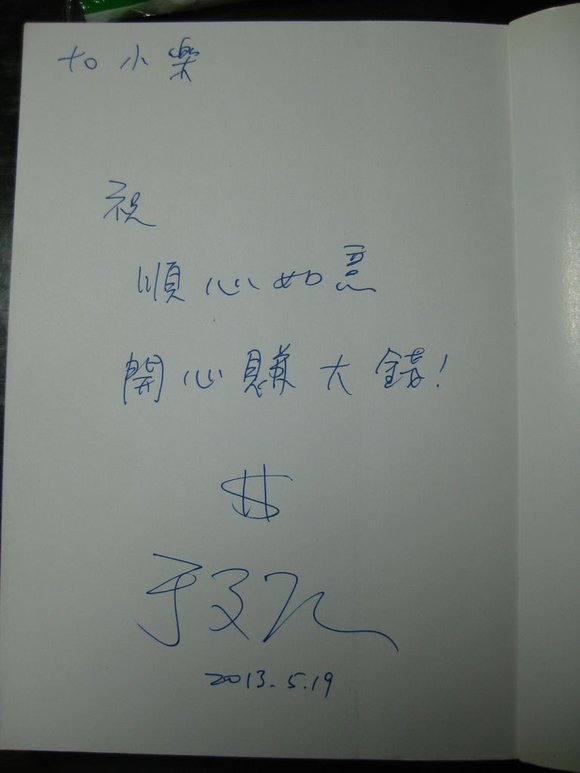 to 小樂
祝
順心如意
開心賺大錢!
$
2013.5.19